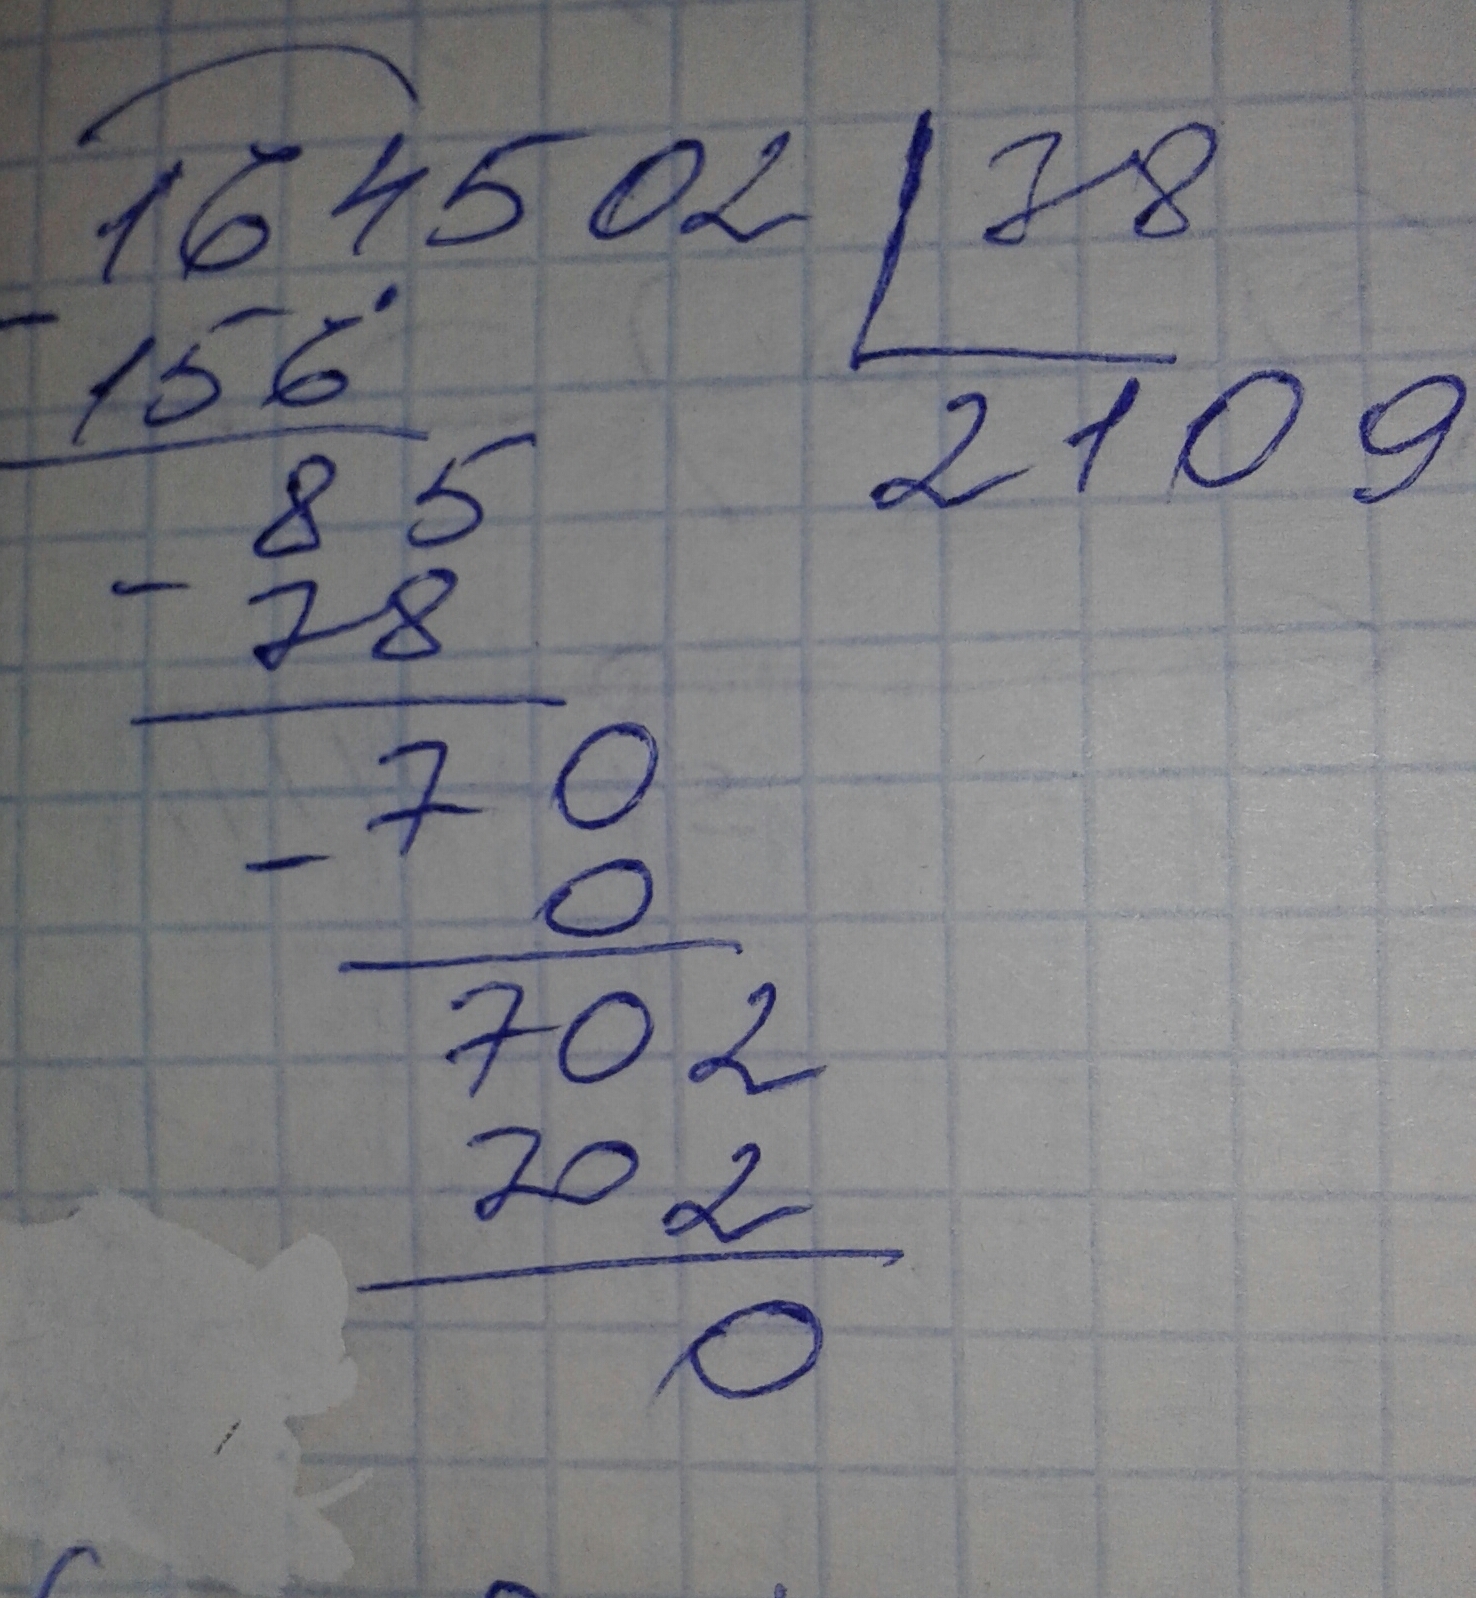 164502 78
- 156 2109
85
- 78
70
- 0
702
702
0